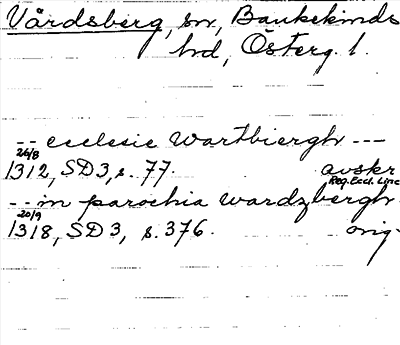 Vårdsberg, sn, Bankekinds
hd, Österg. l.
-- ecclesie Wartbiergh ---
26/8
1312, SD 3, s. 77. avskr
Reg. Eccl. Linc
-- in parochia wardzbergh
20/9
1318, SD 3, s. 376. orig.